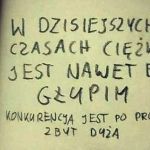 W DZISIEJSZYCH
CZASACH CIĘŻKO
JEST NAWET B
GŁUPIM
KONKURENCJA JEST PO PRO
ZBYT DUŻA